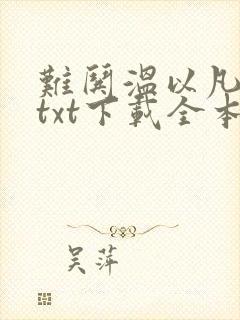 難鬨溫以凡
txt下載全本
吴萍